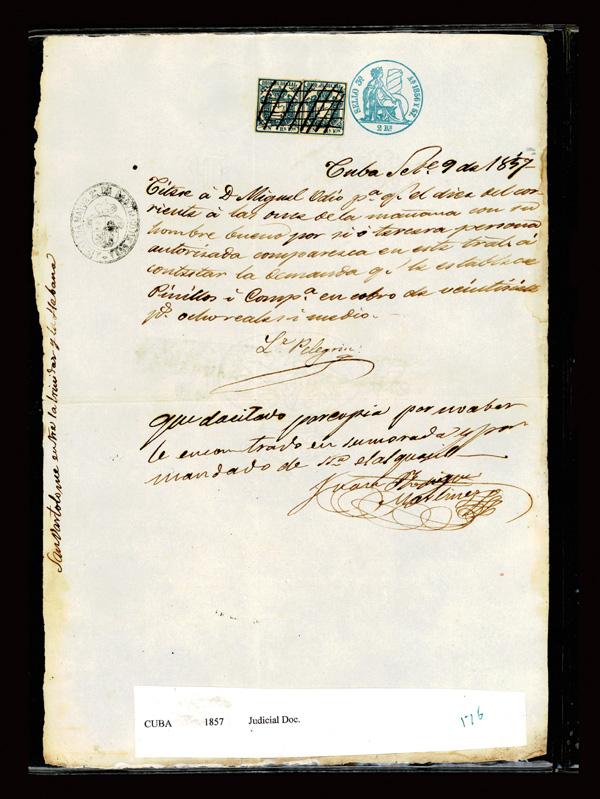 SELLO 3º Aº 1856 Y 57.
2 Rˢ
Cuba Seteᵉ 9 de 1857
Citese à D. Miguel Odio pª qᵉ el diez del cor
riente à las once de la mañana con su
hombre bueno por si ó tercera persona
autorizada comparesca en este trâl. á
contestar la demanda qᵉ le establece
Pinillos i Compª en cobro de
pˢ ocho reales i medio.
Lº Pelegrin
Queda citado por copia por no aber
le encontrado en su morada y por
mandado de el alguacil
Juan
Martinez
San Bartolome entre la trinidad y la Habana
CUBA 1857 Judicial Doc.
176